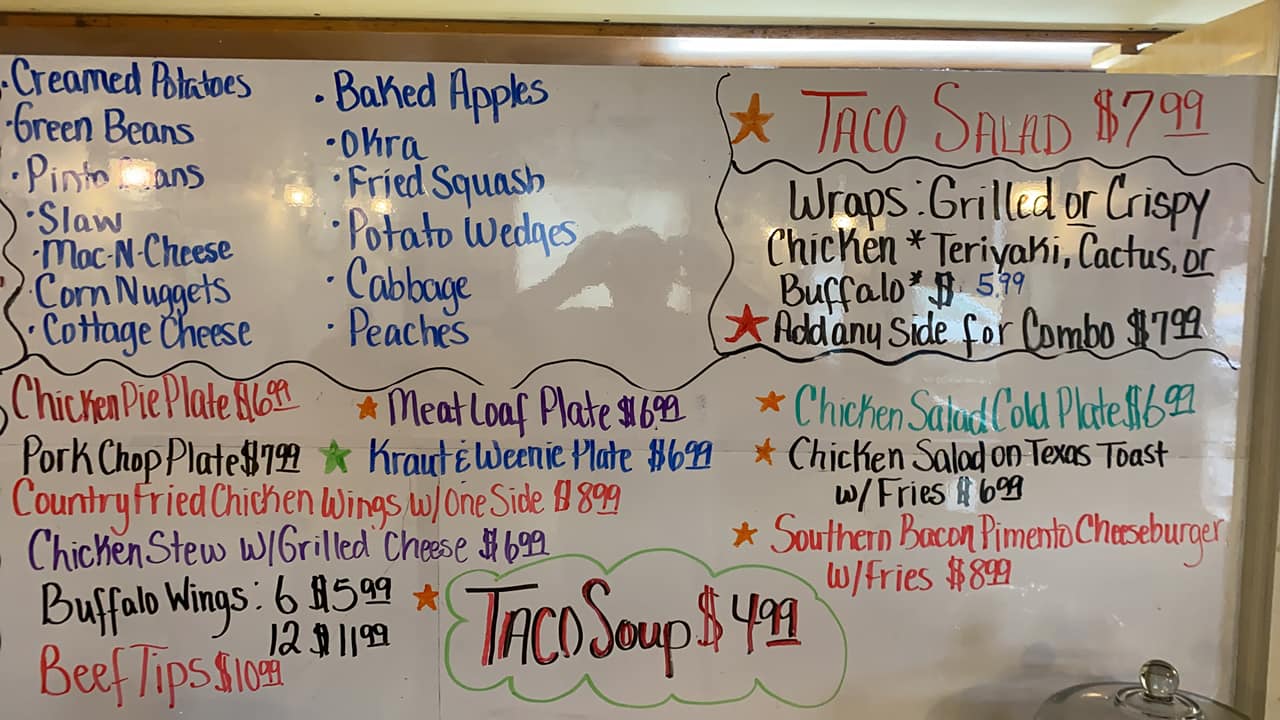 · Creamed Potatoes
· Green Beans
· Pinto
· Slaw
· Mac-N-Cheese
· Corn Nuggets
· Cottage Cheese
· Baked Apples
· Okra
· Fried Squash
· Potato Wedges
· Cabbage
· Peaches
Taco Salad $7.99
Wraps: Grilled or Crispy
Chicken * Teriyaki, Cactus, or
Buffalo* $ 5.99
Add any Side for Combo $7.99
Chicken Pie Plate $6.99
Pork Chop Plate $7.99
Meat Loaf Plate $6.99
Kraut & Weenie Plate $6.99
Country Fried Chicken Wings w/ One Side $8.99
Chicken Stew w/ Grilled Cheese $6.99
Buffalo Wings: 6 $5.99
12 $11.99
Beef Tips $10.99
Taco Soup $4.99
Chicken Salad Cold Plate $6.99
Chicken Salad on Texas Toast
w/ Fries $6.99
Southern Bacon Pimento Cheeseburger
w/ Fries $8.99